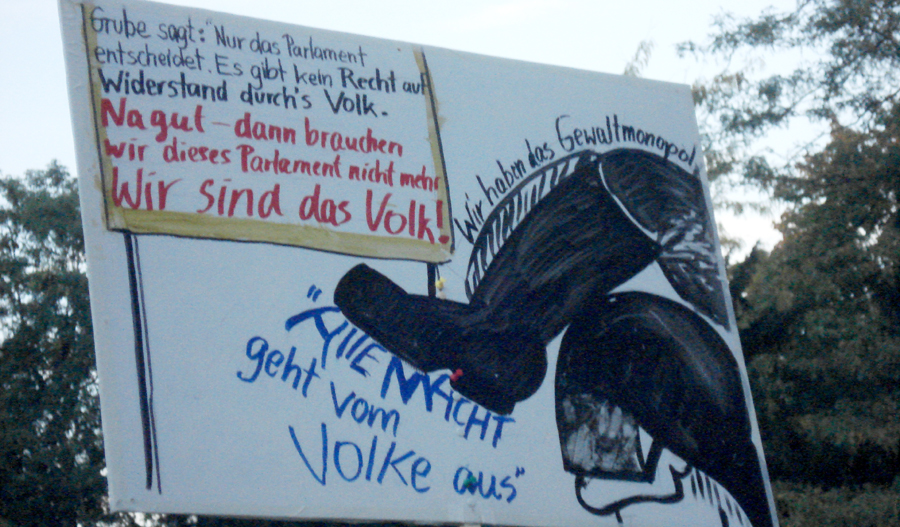 Grube sagt: "Nur das Parlament
entscheidet. Es gibt kein Recht auf
Widerstand durch's Volk.
Na gut – dann brauchen
wir dieses Parlament nicht mehr
Wir sind das Volk!
Wir haben das Gewaltmonopol
"Alle MACHT
geht vom
Volke aus"